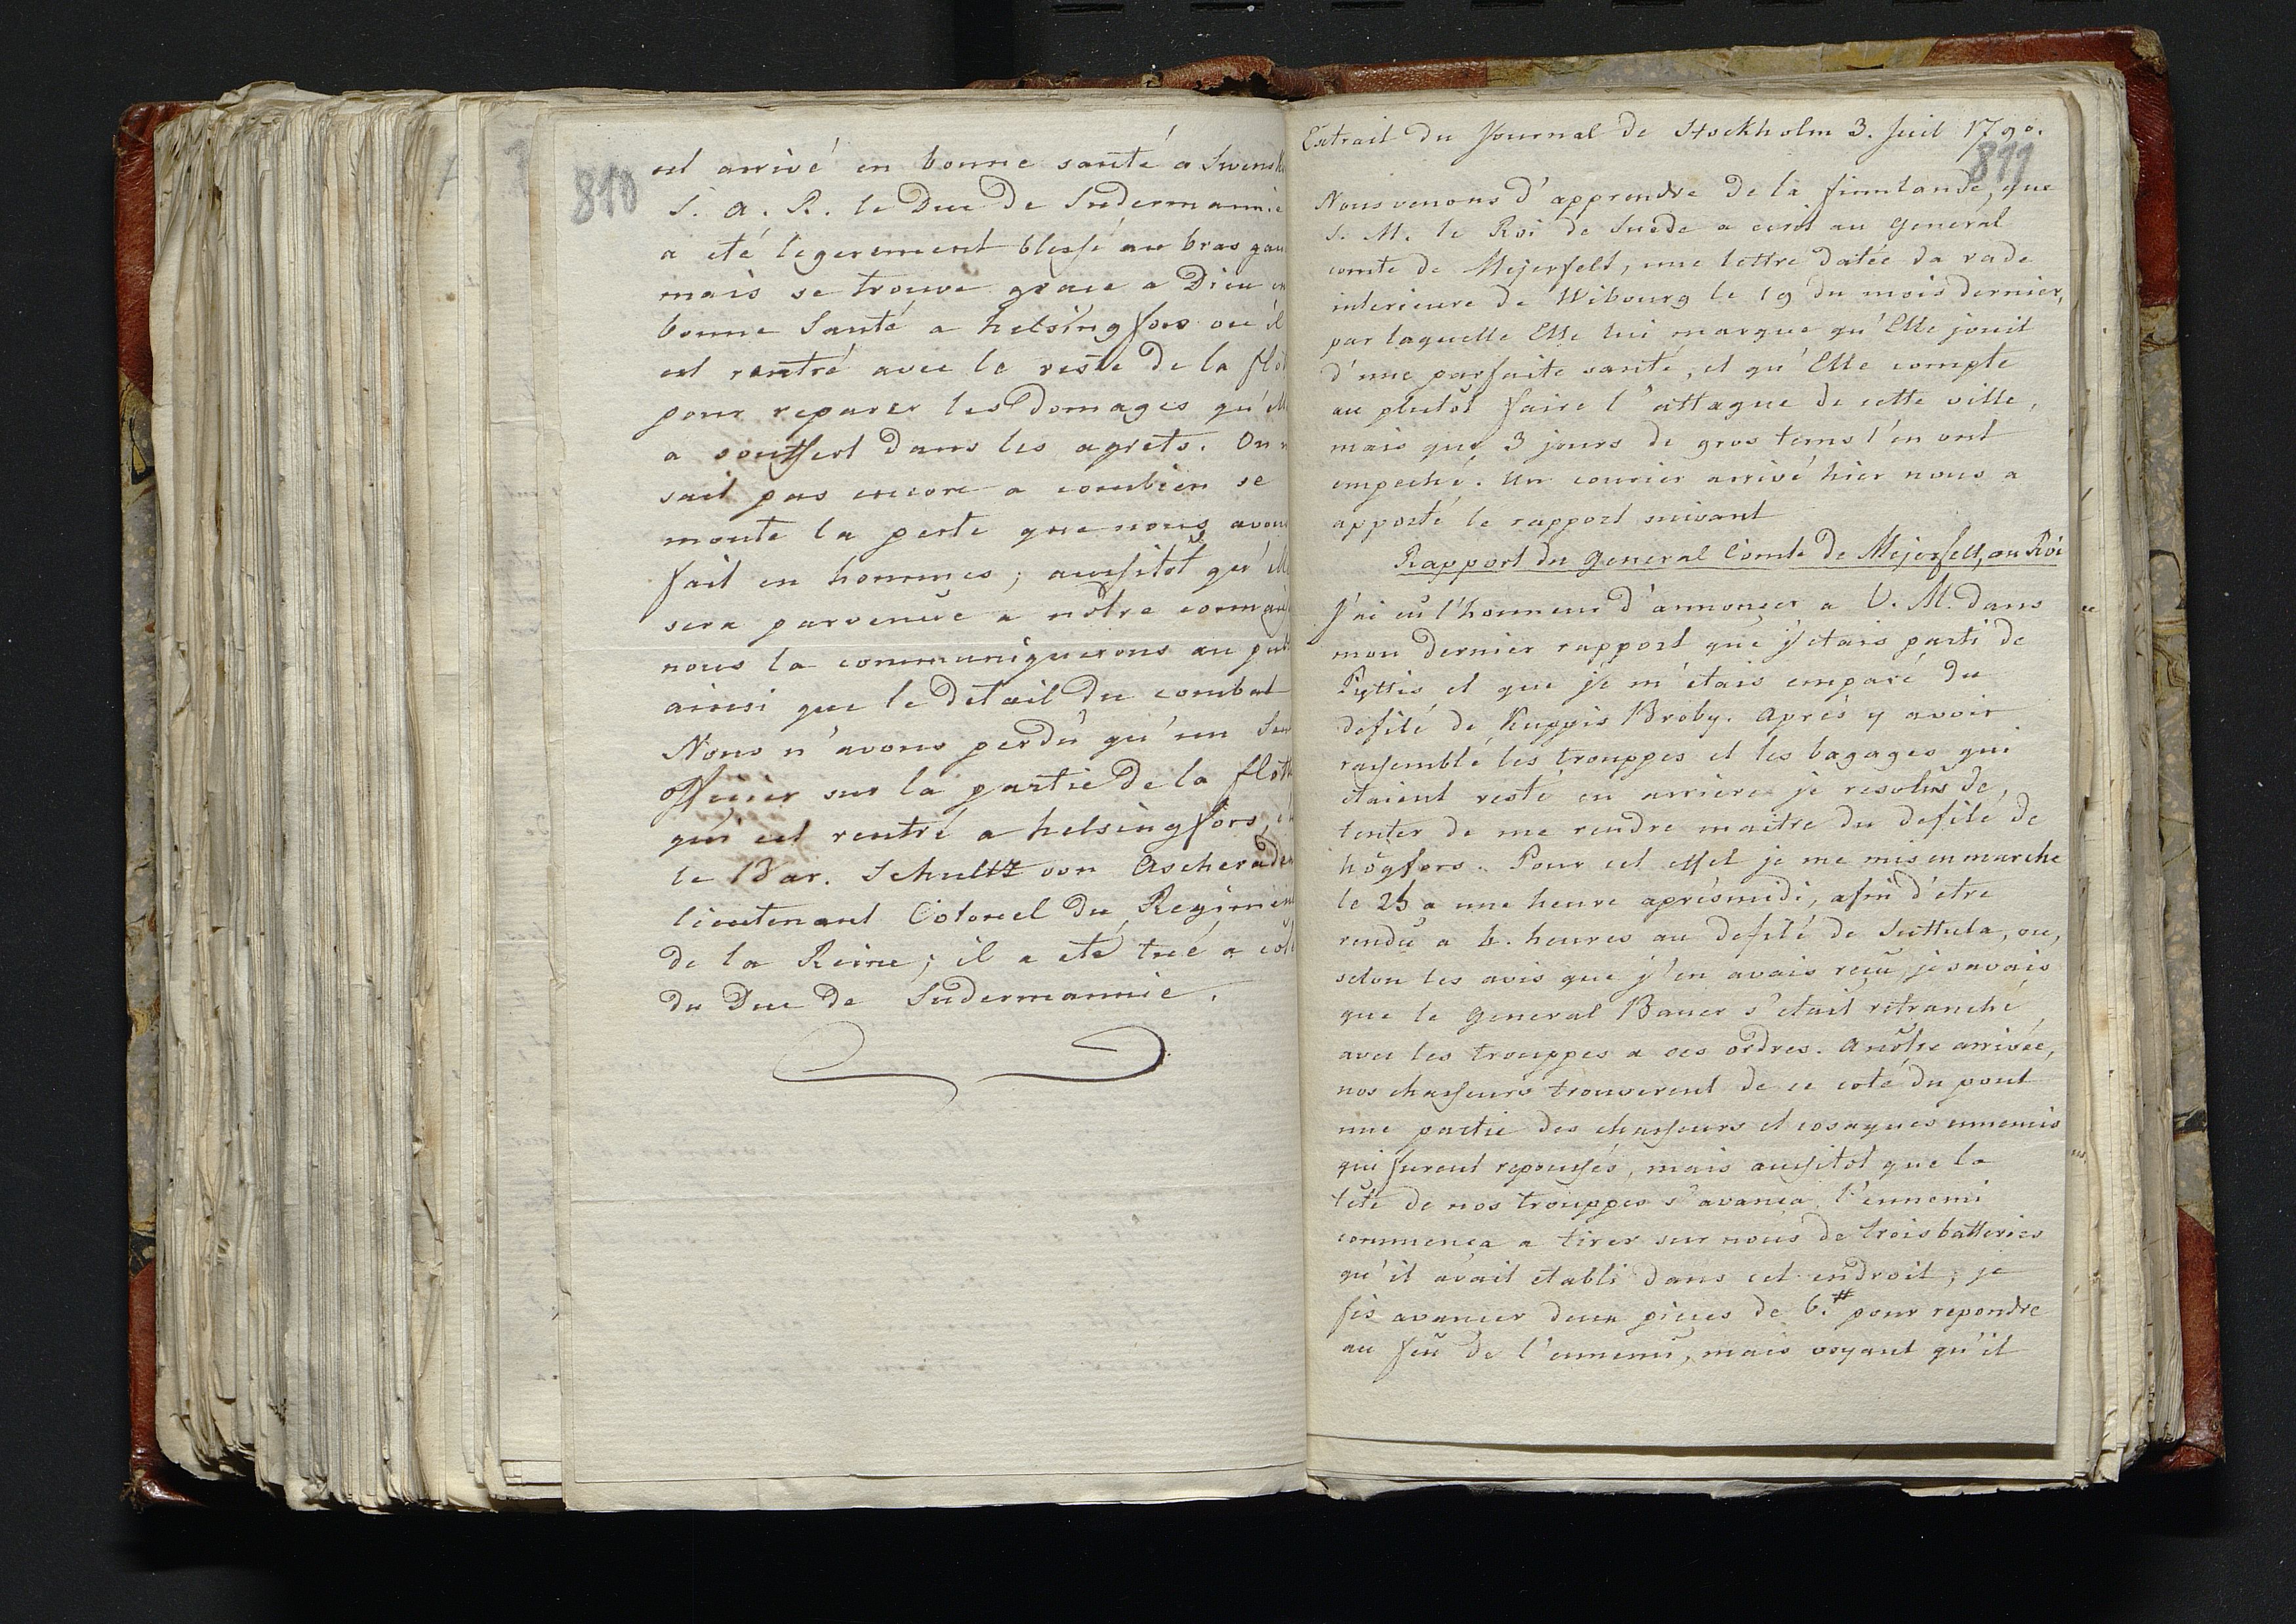 810
est arrivé en bonne santé a Swensk
S. A. R. le Duc de Sudermannie
a eté legerement blessé au bras gau
mais se trouve grace a Dieu en
bonne Santé a helsingfors ou il
est rentré avec le reste de la flot
pour reparer les Domages qu'elle
a souffert dans les agrets. On n
sait pas encore a combien se
monte la perte que nous avons
fait en hommes; aussitôt qu'elle
sera parvenüe a nôtre connaiss
nous la communiquerons au publ
ainsi que le detail du combat
Nous n'avons perdû qu'un Seu
Officier sur la partie de la flott
qui est rentré a helsingfors, c'e
le Bar. Schultz von Ascheraden
lieutenant Colonel du Regiment
de la Reine; il a eté tué a côté
du Duc de Sudermannie.
Extrait du Journal de Stockholm 3. Juil 1790.
811
Nous venons d'apprendre de la finnlande, que
S. M. le Roi de Suede a ecrit au General
comte de Mejerfelt, une lettre datée da rade
interieure de Wibourg le 19 du mois dernier,
par laquelle Elle lui marque qu'Elle jouit
d'une parfaite santé, et qu'Elle compte
au plutôt faire l'attaque de cette ville,
mais que 3 jours de gros tems l'en ont
empeché. Un courier arrivé hier nous a
apporté le rapport suivant
Rapport du General Comte de Mejerfelt, au Roi
J'ai eû l'honneur d'annonser a V. M. dans
mon dernier rapport que j'etais parti de
Pyttis et que je m'étais emparé du
defilé de Kuppis Broby. Aprés y avoir
rassemblé les trouppes et les bagages qui
étaient resté en arriere je resolus de,
tenter de me rendre maitre du defilé de
högfors. Pour cet effet je me mis en marche
le 25 a une heure aprésmidi, afin d'etre
rendû a 4. heures au defilé de Suttula, ou,
selon les avis que j'en avais reçû, je savais
que le General Bauer s'etait retranché
avec les trouppes a ses ordres. A nôtre arrivée,
nos chasseurs trouverent de ce coté du pont
une partie des chasseurs et cosaques ennemis
qui furent repoussés, mais aussitot que la
tête de nos trouppes s'avança l'ennemi
commença a tirer sur nous de trois batteries
qu'il avait etabli dans cet endroit; je
fis avancer deux pieces de 6.# pour repondre
au feu de l'ennemi, mais voyant qu'il